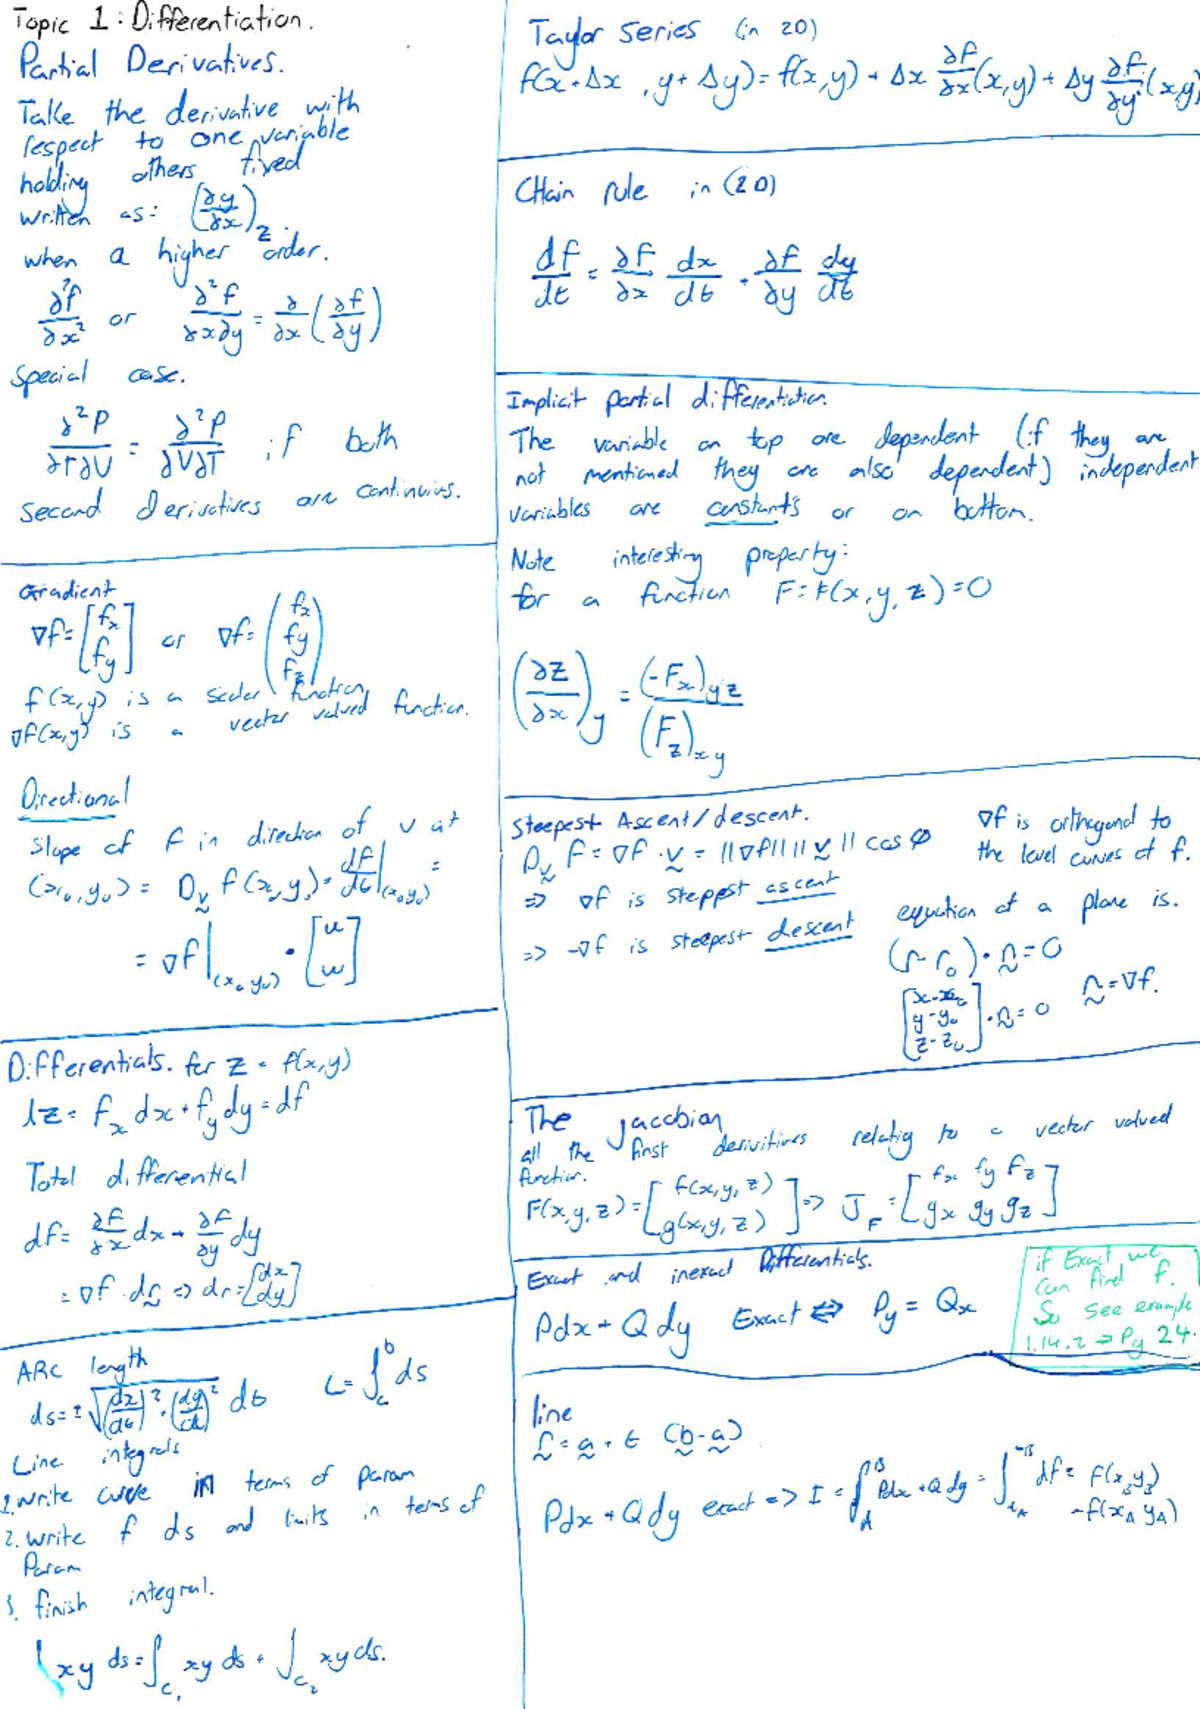 Topic 1: Differentiation.
Partial Derivatives.
Take the derivative with
respect to one variable
holding others fixed
written as: (∂y/∂x)_z.
when a higher order.
∂²f/∂x² or ∂²f/∂x∂y = ∂/∂x (∂f/∂y)
Special case.
∂²P/∂T∂V = ∂²P/∂V∂T if both
Second derivatives are continuius.
Gradient
∇f = [f_x f_y] or ∇f = (f_x f_y f_z)
f(x,y) is a scalar function,
∇f(x,y) is a vector valued function.
Directional
Slope of f in direction of v at
(x₀, y₀) = D_v f(x₀, y₀) = df/dt |(x₀ y₀) =
= ∇f |(x₀ y₀) • [u w]
Differentials. for z = f(x,y)
dz = f_x dx + f_y dy = df
Total differential
df = ∂f/∂x dx + ∂f/∂y dy
= ∇f . dr ⇒ dr = [dx dy]
ARc length
ds = ± √((dx/dt)² + (dy/dt)²) dt L = ∫ ds
Line integrals
1. write curve in terms of param
2. write f ds and limits in terms of
Param
3. finish integral.
∫ xy ds = ∫_C₁ xy ds + ∫_C₂ xy ds.
Taylor series (in 2D)
f(x+Δx, y+Δy) = f(x,y) + Δx ∂f/∂x (x,y) + Δy ∂f/∂y (x,y)
CHain rule in (2D)
df/dt = ∂f/∂x dx/dt + ∂f/∂y dy/dt
Implicit partial differentiation.
The variable on top are dependent (if they are
not mentioned they are also dependent) independent
variables are constants or on bottom.
Note interesting property:
for a function F = F(x, y, z) = 0
(∂z/∂x)_y = (-F_x)_yz / (F_z)_xy
Steepest Ascent/descent.
D_v f = ∇f . v = ||∇f|| ||v|| cos φ
⇒ ∇f is steppest ascent
⇒ -∇f is steepest descent
∇f is orthogonal to
the level curves of f.
equation of a plane is.
(r - r₀) • n = 0
[x-x₀ y-y₀ z-z₀] • n = 0 n = ∇f.
The Jacobian
all the first derivitives relatig to a vector valued
function.
F(x,y,z) = [f(x,y,z) g(x,y,z)] ⇒ J_F = [f_x f_y f_z g_x g_y g_z]
Exact and inexact Differentials.
Pdx + Q dy Exact ⇔ P_y = Q_x
if Exact we
can find f.
So see example
1.14.2 ⇒ Pg 24.
line
r = a + t (b - a)
Pdx + Qdy exact ⇒ I = ∫_A^B Pdx + Q dy = ∫ df = f(x_B y_B)
- f(x_A y_A)